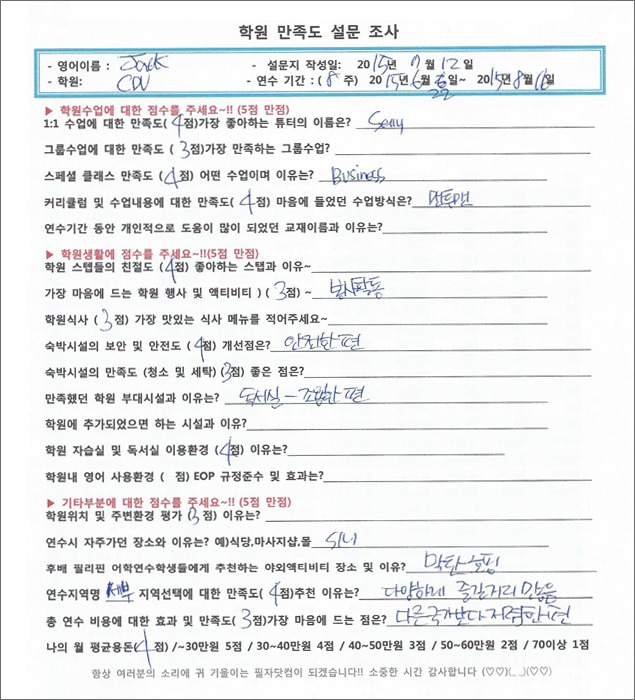 학원 만족도 설문 조사
- 영어이름 : Jack - 설문지 작성일: 2015년 7월 12일
- 학원: CDU - 연수 기간 : ( 8 주) 2015년 6월 22일~ 2015년 8월 16일
▶ 학원수업에 대한 점수를 주세요~!! (5점 만점)
1:1 수업에 대한 만족도( 4점)가장 좋아하는 튜터의 이름은?
그룹수업에 대한 만족도 ( 3점)가장 만족하는 그룹수업?
스페셜 클래스 만족도 ( 4점) 어떤 수업이며 이유는? Business
커리큘럼 및 수업내용에 대한 만족도( 4점) 마음에 들었던 수업방식은? 맨투맨
연수기간 동안 개인적으로 도움이 많이 되었던 교재이름과 이유는?
▶ 학원생활에 점수를 주세요~!!(5점 만점)
학원 스텝들의 친절도 (4점) 좋아하는 스탭과 이유~
가장 마음에 드는 학원 행사 및 액티비티 ) ( 3점) ~ 봉사활동
학원식사 ( 3점) 가장 맛있는 식사 메뉴를 적어주세요~
숙박시설의 보안 및 안전도 ( 4점) 개선점은? 안전한 편
숙박시설의 만족도 (청소 및 세탁) (3점) 좋은 점은?
만족했던 학원 부대시설과 이유는? 독서실 – 조용한 편
학원에 추가되었으면 하는 시설과 이유?
학원 자습실 및 독서실 이용환경 (4점) 이유는?
학원내 영어 사용환경 ( 점) EOP 규정준수 및 효과는?
▶ 기타부분에 대한 점수를 주세요~!! (5점 만점)
학원위치 및 주변환경 평가 (3점) 이유는?
연수시 자주가던 장소와 이유는? 예)식당,마사지샵,몰 시내
후배 필리핀 어학연수학생들에게 추천하는 야외액티비티 장소 및 이유? 막탄 호핑
연수지역명 세부 지역선택에 대한 만족도( 4점)추천 이유는? 다양하게 즐길거리 많음
총 연수 비용에 대한 효과 및 만족도( 3점)가장 마음에 드는 점은? 다른국가보다 저렴한 편
나의 월 평균용돈(4점) /~30만원 5점 / 30~40만원 4점 / 40~50만원 3점 / 50~60만원 2점 / 70이상 1점
항상 여러분의 소리에 귀 기울이는 필자닷컴이 되겠습니다!! 소중한 시간 감사합니다 (♡♡)(_ _)(♡♡)